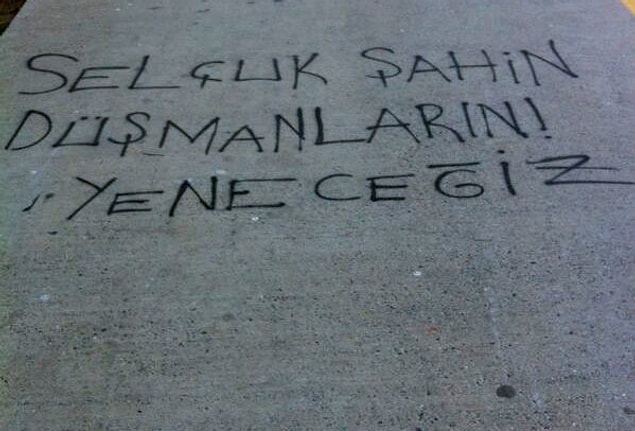 SELÇUK ŞAHİN
DÜŞMANLARIN!
..YENECEĞİZ